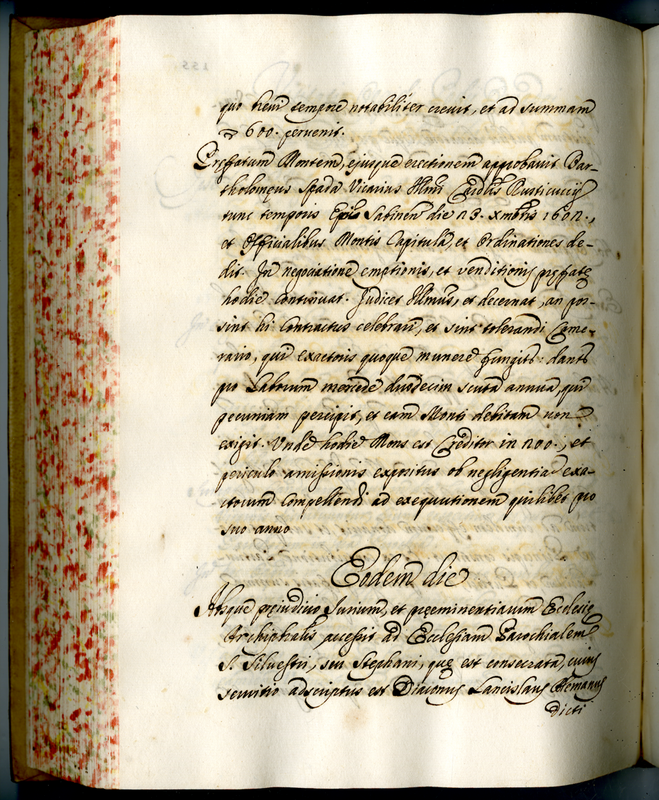 quo brevi tempore notabiliter crevit, et ad summam
600. pervenit.
Præfatum Montem, ejusque erectionem approbavit Bar-
tholomęus Spada Vicarius Illmi Cardlis Rusticucij
tunc temporis Epi Sabinen die 23. Xmbris 1602.,
et Officialibus Montis Capitula, et Ordinationes de-
dit. In negociatione emptionis, et venditionis pręfatę
hodie continuat. Judicet Illmus, et decernat, an pos-
sint hi Contractus celebrari, et sint tolerandi Came-
rario, qui exactoris quoque munere fungitr: dantr
pro Laborum mercede duodecim scuta annua, qui
pecuniam percipit, et eam Monti debitam non
exigit. Unde hodie Mons est Creditor in 200., et
periculo amissionis expositus ob negligentia exa-
ctorum compellendi ad exequutionem quilibet pro
suo anno
Eodem die
Absque pręiudicio Jurium, et pręeminentiarum Ecclesię
Archiptralis accessit ad Ecclesiam Parochialem
S. Silvestri, seu Stephani, quę est consecrata, cuius
servitio adscriptus est Diaconus Lancislaus
dicti